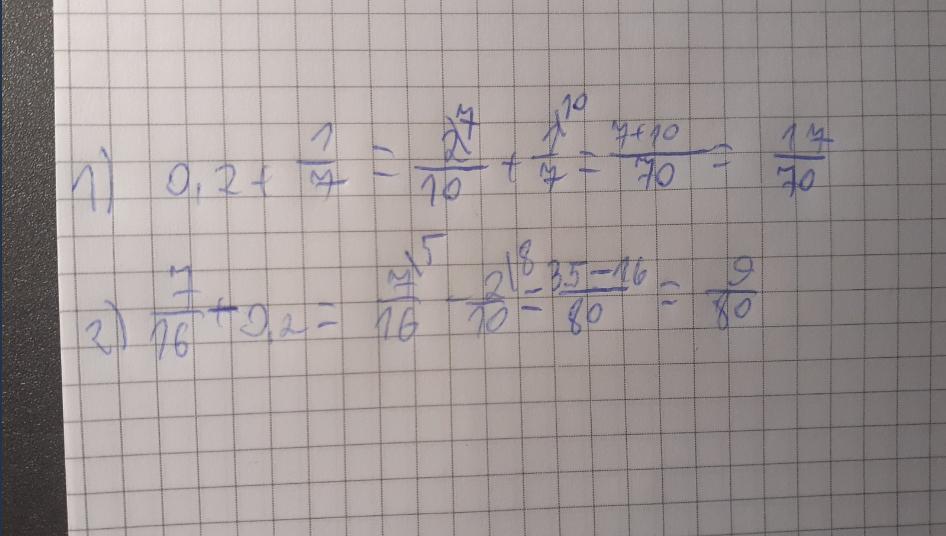 1) 0,2 + 1/7 = 2\7/10 + 1\10/7 = 7+10/70 = 17/70
2) 7/16 + 0,2 = 7\5/16 - 2\8/10 = 35-16/80 = 9/80